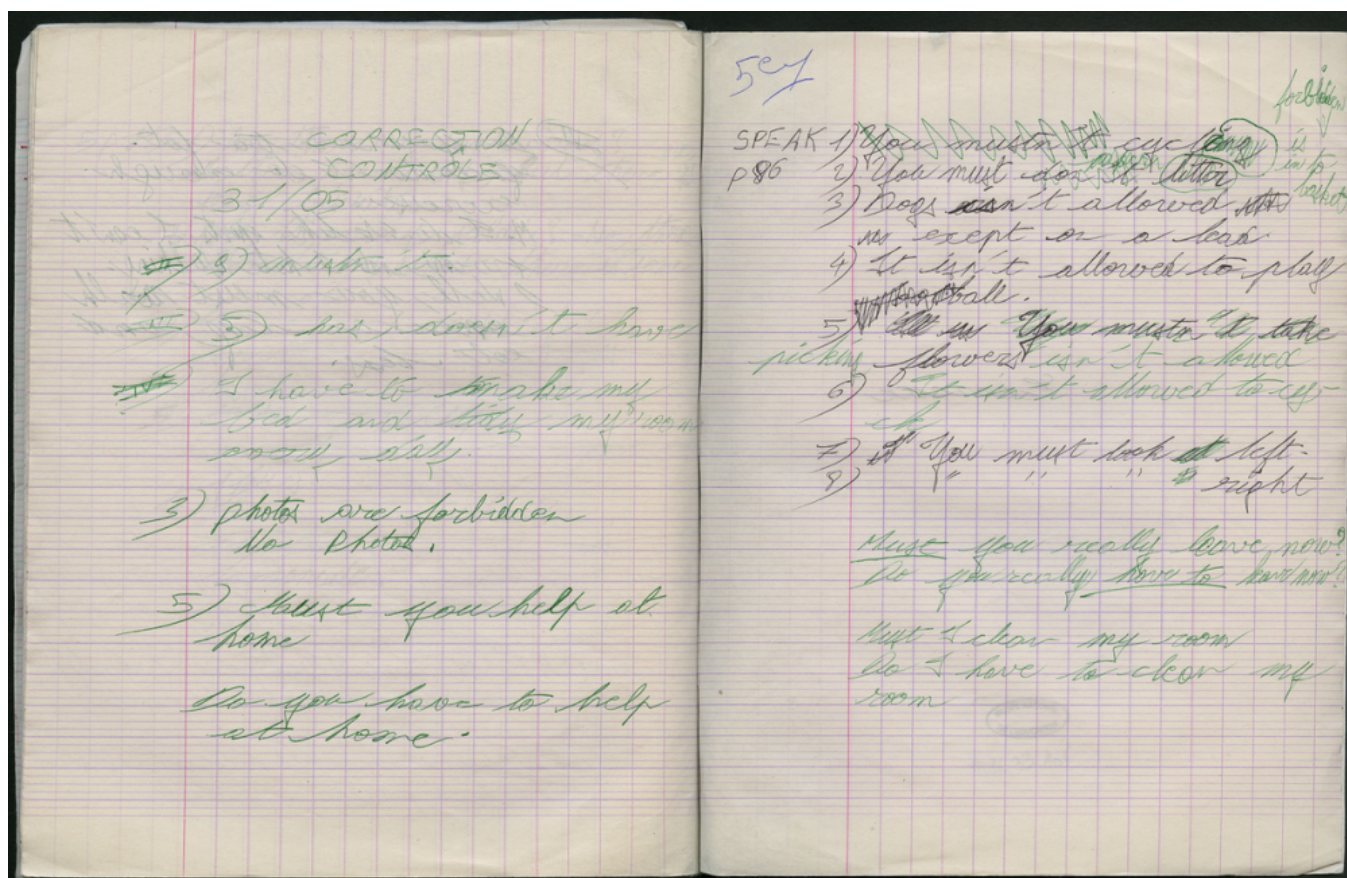 CORRECTION
CONTRÔLE
31/05
2) mustn't
3) has doesn't have
I have to make my
bed and tidy my room
every day.
3) photos are forbidden
No Photos.
5) Must you help at
home
Do you have to help
at home.
5ey
forbidden
SPEAK 1) You mustn't cycling is
in to
p86 2) You must don't litter
baskets
3) Dogs isn't allowed
exept on a lead.
4) It isn't allowed to play
ball.
5) You mustn't take
picking flowers isn't allowed
6) It isn't allowed to cy-
cle
7) You must look at left.
8) " " " " right
Must you really leave now?
Do you really have to leave now?
Must I clean my room
Do I have to clean my
room